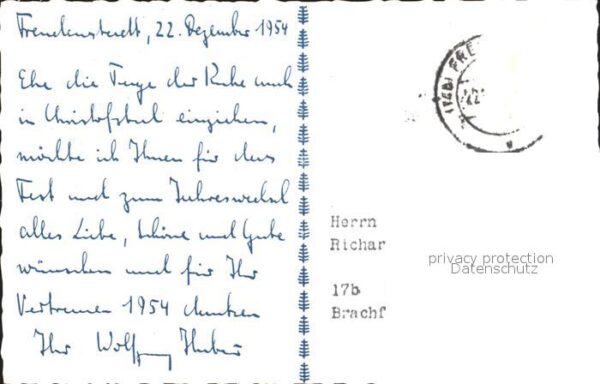 Freudenstadt, 22. Dezember 1954
Ehe die Tage der Ruhe auch
in Christofstal einziehen,
möchte ich Ihnen für das
Fest und zum Jahreswechsel
alles Liebe, Schöne und Gute
wünschen und für Ihr
Vertrauen 1954 danken
Ihr Wolfgang Huber
(14B) FRE
22.
Herrn
Richar
privacy protection
Datenschutz
17b
Brachf